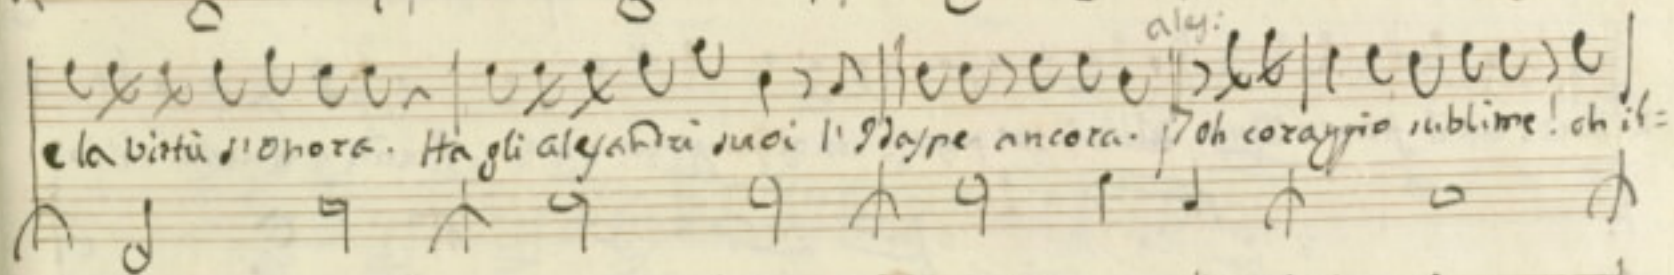 aleſ:
e la virtù s'onora. Ha gli aleſandri suoi l'Idaspe ancora. oh coraggio sublime! oh il=